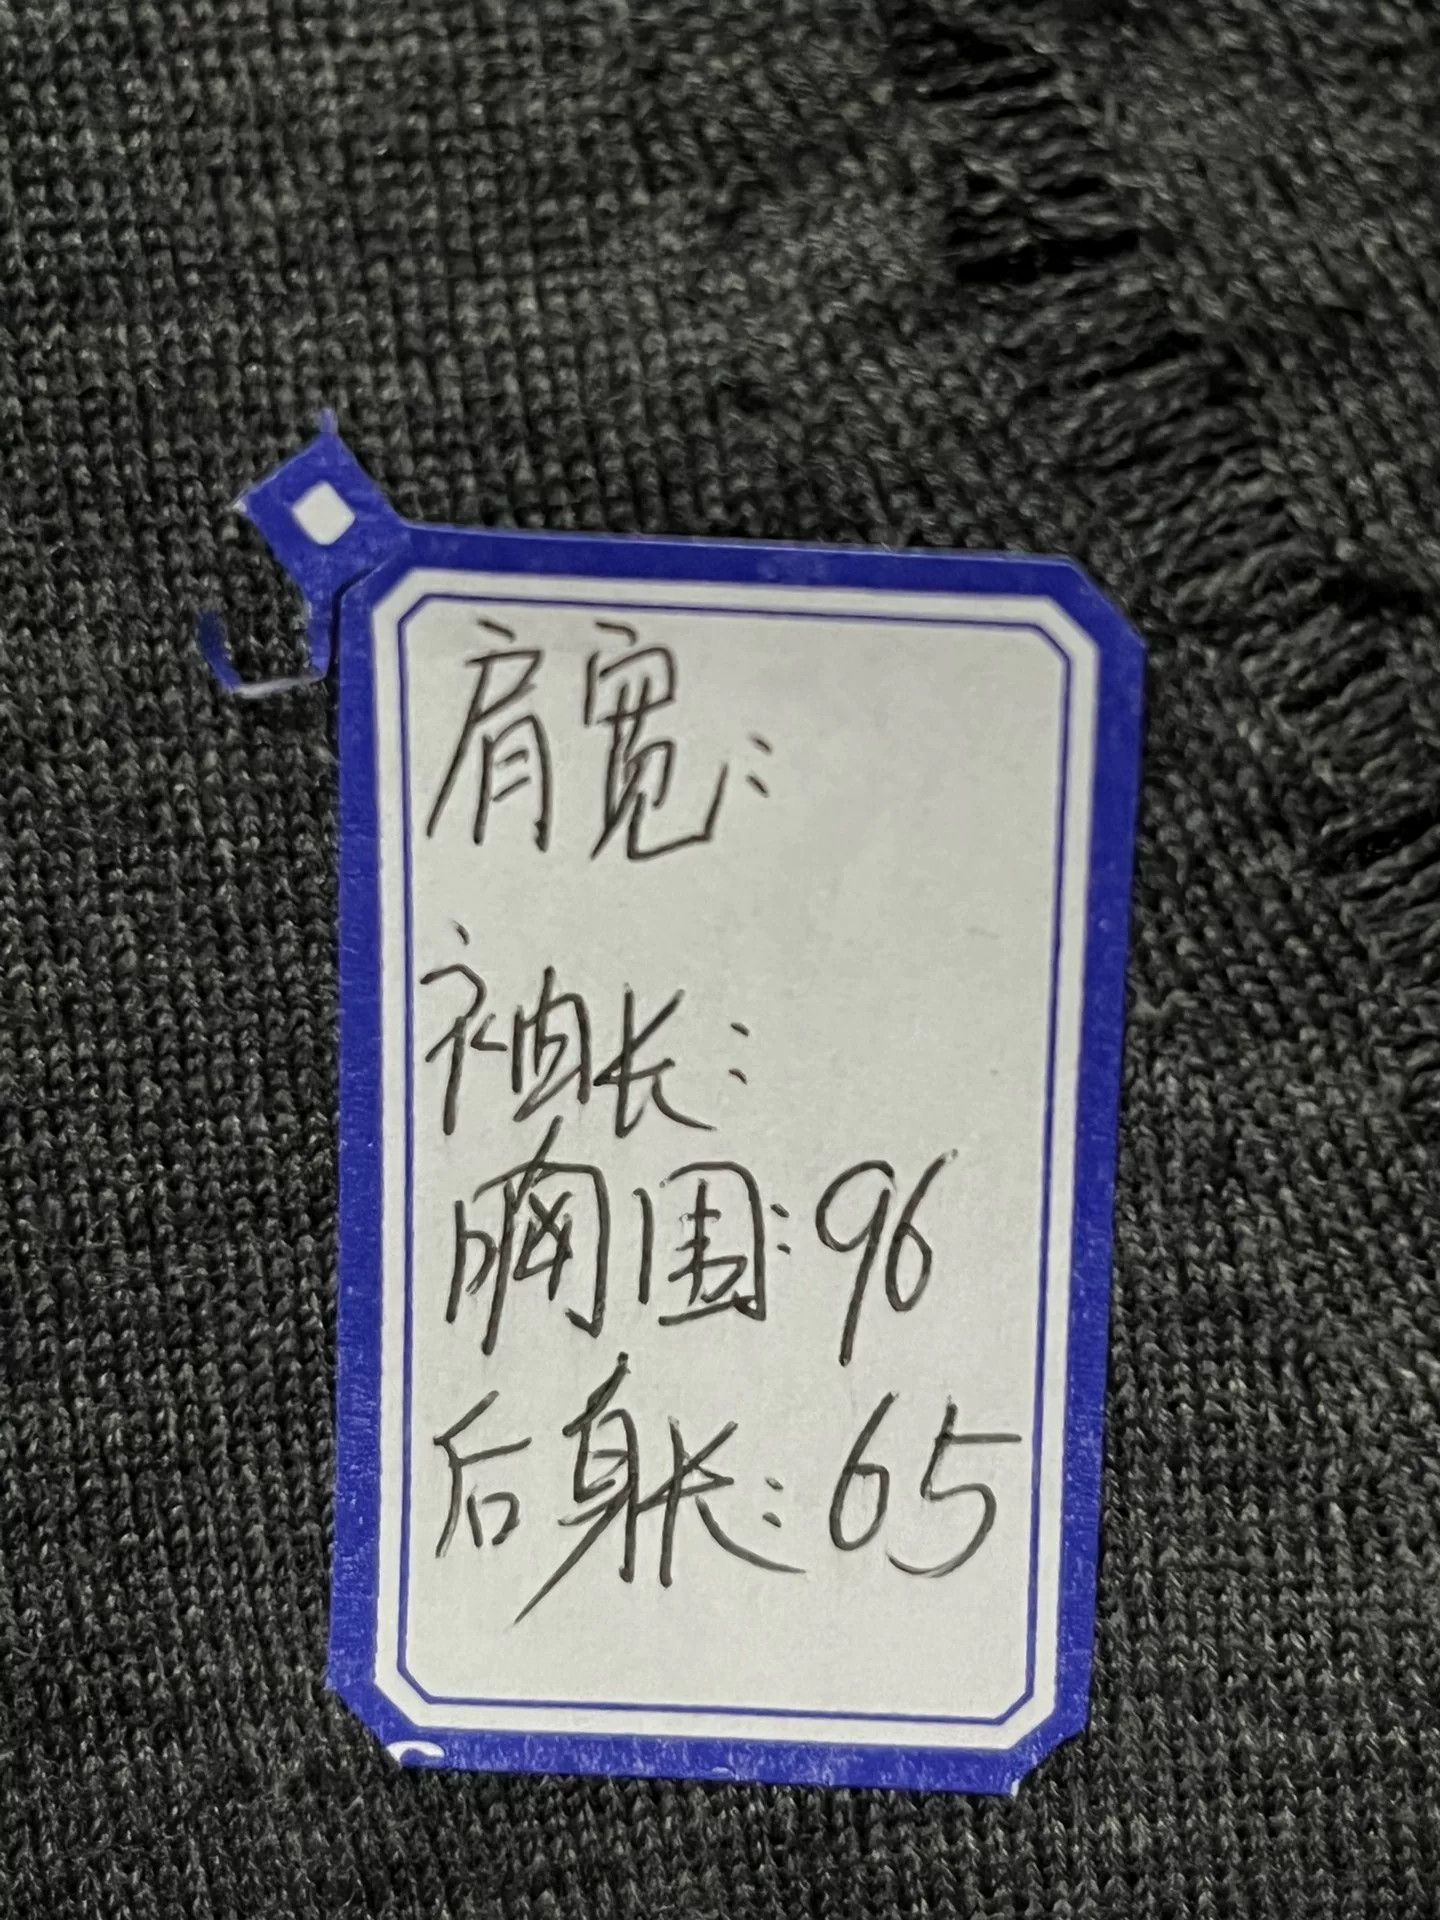 肩宽:
袖长:
胸围:96
后身长:65